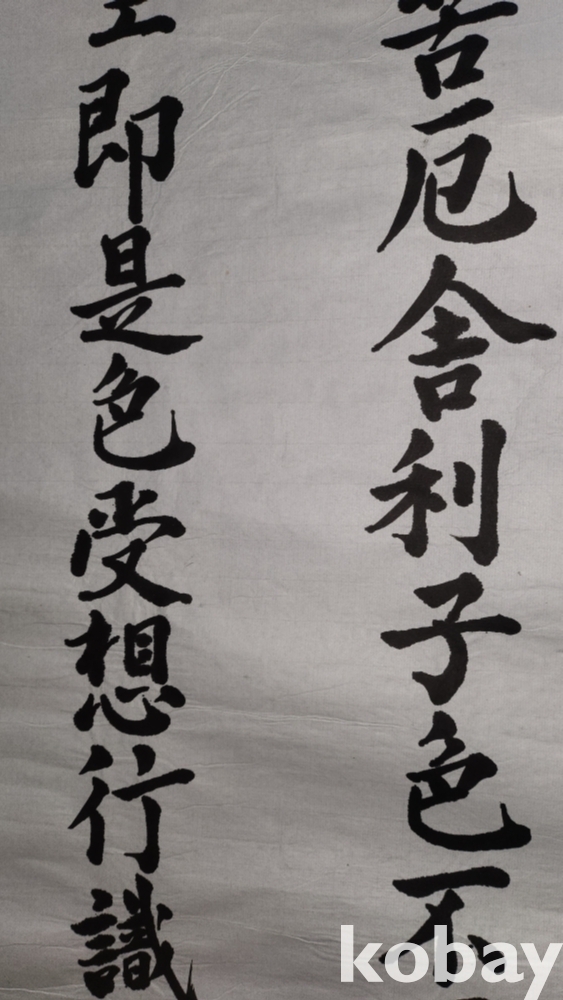 苦厄舍利子色不
空即是色受想行識
kobay